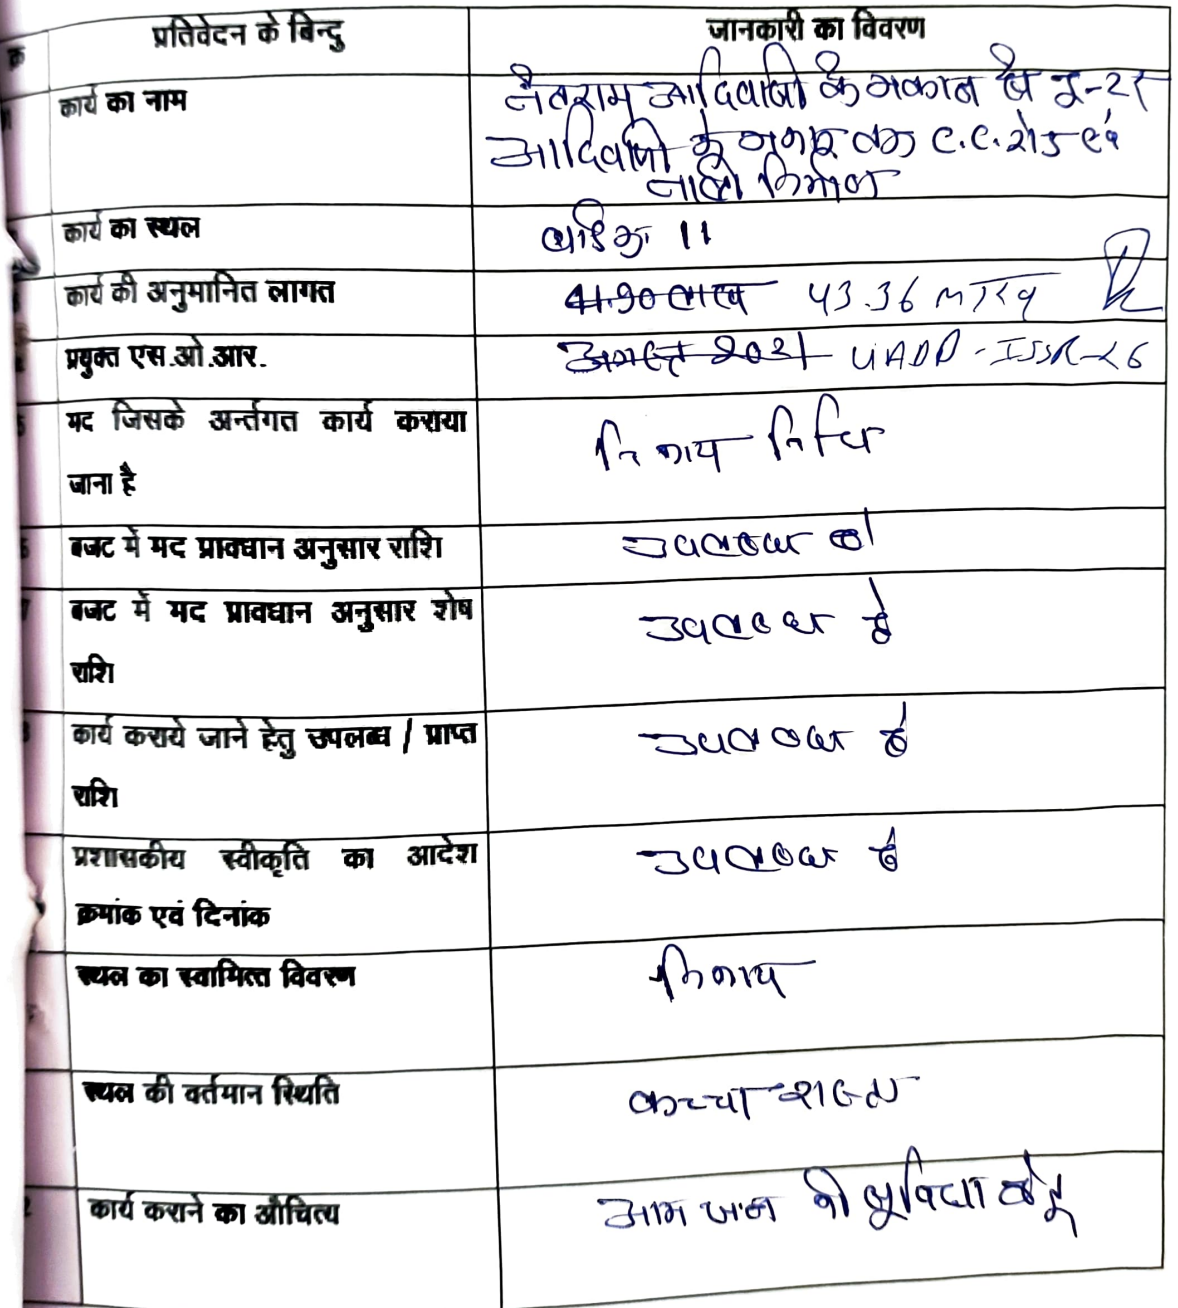 क्र
प्रतिवेदन के बिन्दु
जानकारी का विवरण
कार्य का नाम
नेतराम आदिवासी के मकान से
आदिवासी के मकान तक C.C. रोड एवं
नाली निर्माण
कार्य का स्थल
वार्ड क्र 11
कार्य की अनुमानित लागत
41.90 लाख 43.36 लाख
प्रयुक्त एस.ओ.आर.
अगस्त 2021 UADD-ISSR-
मद जिसके अर्न्तगत कार्य कराया
जाना है
निकाय निधि
बजट में मद प्रावधान अनुसार राशि
उपलब्ध है
बजट में मद प्रावधान अनुसार शेष
राशि
उपलब्ध है
कार्य कराये जाने हेतु उपलब्ध / प्राप्त
राशि
उपलब्ध है
प्रशासकीय स्वीकृति का आदेश
क्रमांक एवं दिनांक
उपलब्ध है
स्थल का स्वामित्त विवरण
निकाय
स्थल की वर्तमान स्थिति
कच्चा रास्ता
कार्य कराने का औचित्य
आम जन की सुविधा हेतु